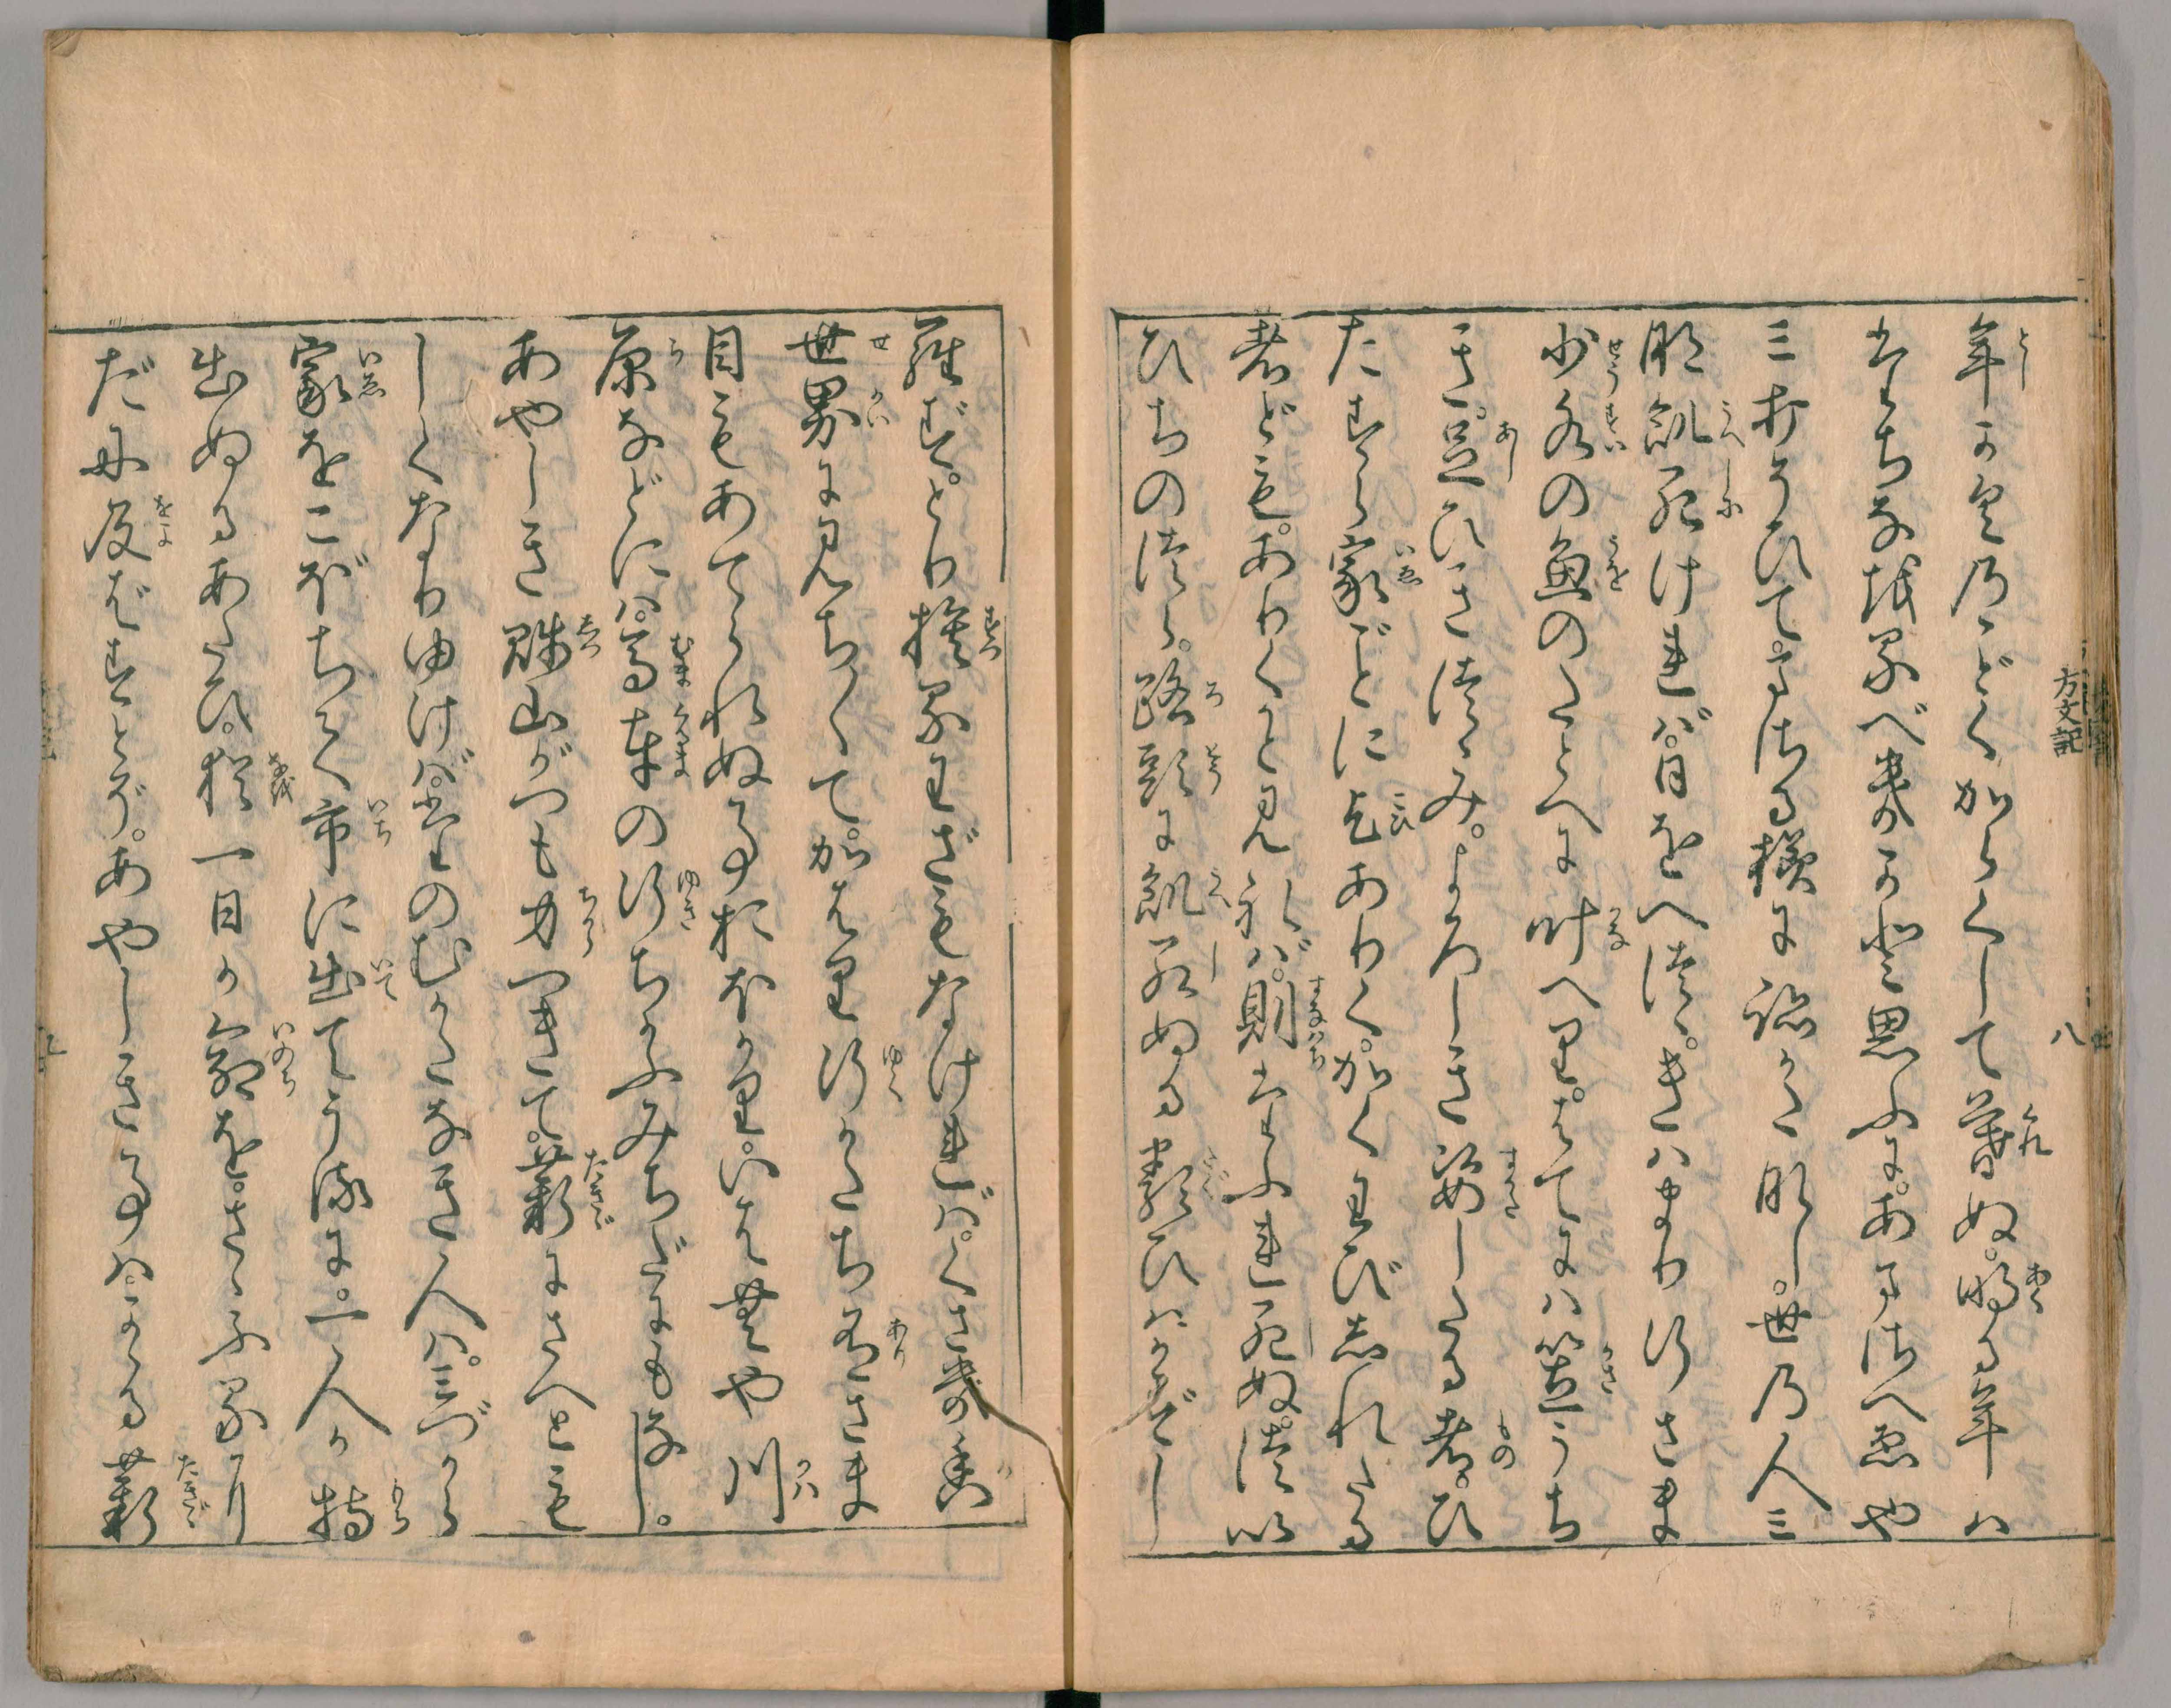 年かくのごとくからくして暮ぬ。明る年ハ
たちなをるべきかと思ふに。あまさへゑや
三打そひて。まさる様に跡かた那し。世乃人三
那飢死けれバ。日をへつゝ。きハまり行さま
少水の魚のたとへに叶へり。はてにハ笠うち
き。足ひきつゝみ。よろしき姿したる者。ひ
たすら家ごとに乞ありく。かくわびしれたる
者ども。ありくかと見れバ。則たふれ死ぬ。つい
ひちのつら。路頭に飢死ぬる類ひハかずし
らず。とり捨るわざもなけれバ。くさき香
世界にみちみちて。かはり行かたち有さま
目もあてられぬ事おほかり。いはむや川
原などにハ。馬車の行ちかふみちだにもなし。
あやしき賤山がつも力つきて。薪にさへとも
しくなりゆけバ。たのむかたなき人ハ。三づから
家をこぼちて市に出てうるに。一人か持
出ぬるあたひ。猶一日か命を。さゝふるに
だに及ばずとぞ。あやしき事ハかゝる薪
方丈記
八